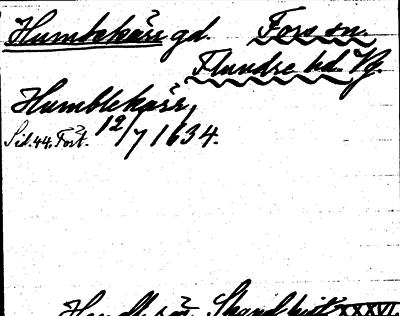 Humbekärr gd. Fors sn.
Flundre hd. Vg.
Humblekärr,
Sid. 44. Fört. 12/7 1634.
Handl. rör. Skand. hist. XXXVI